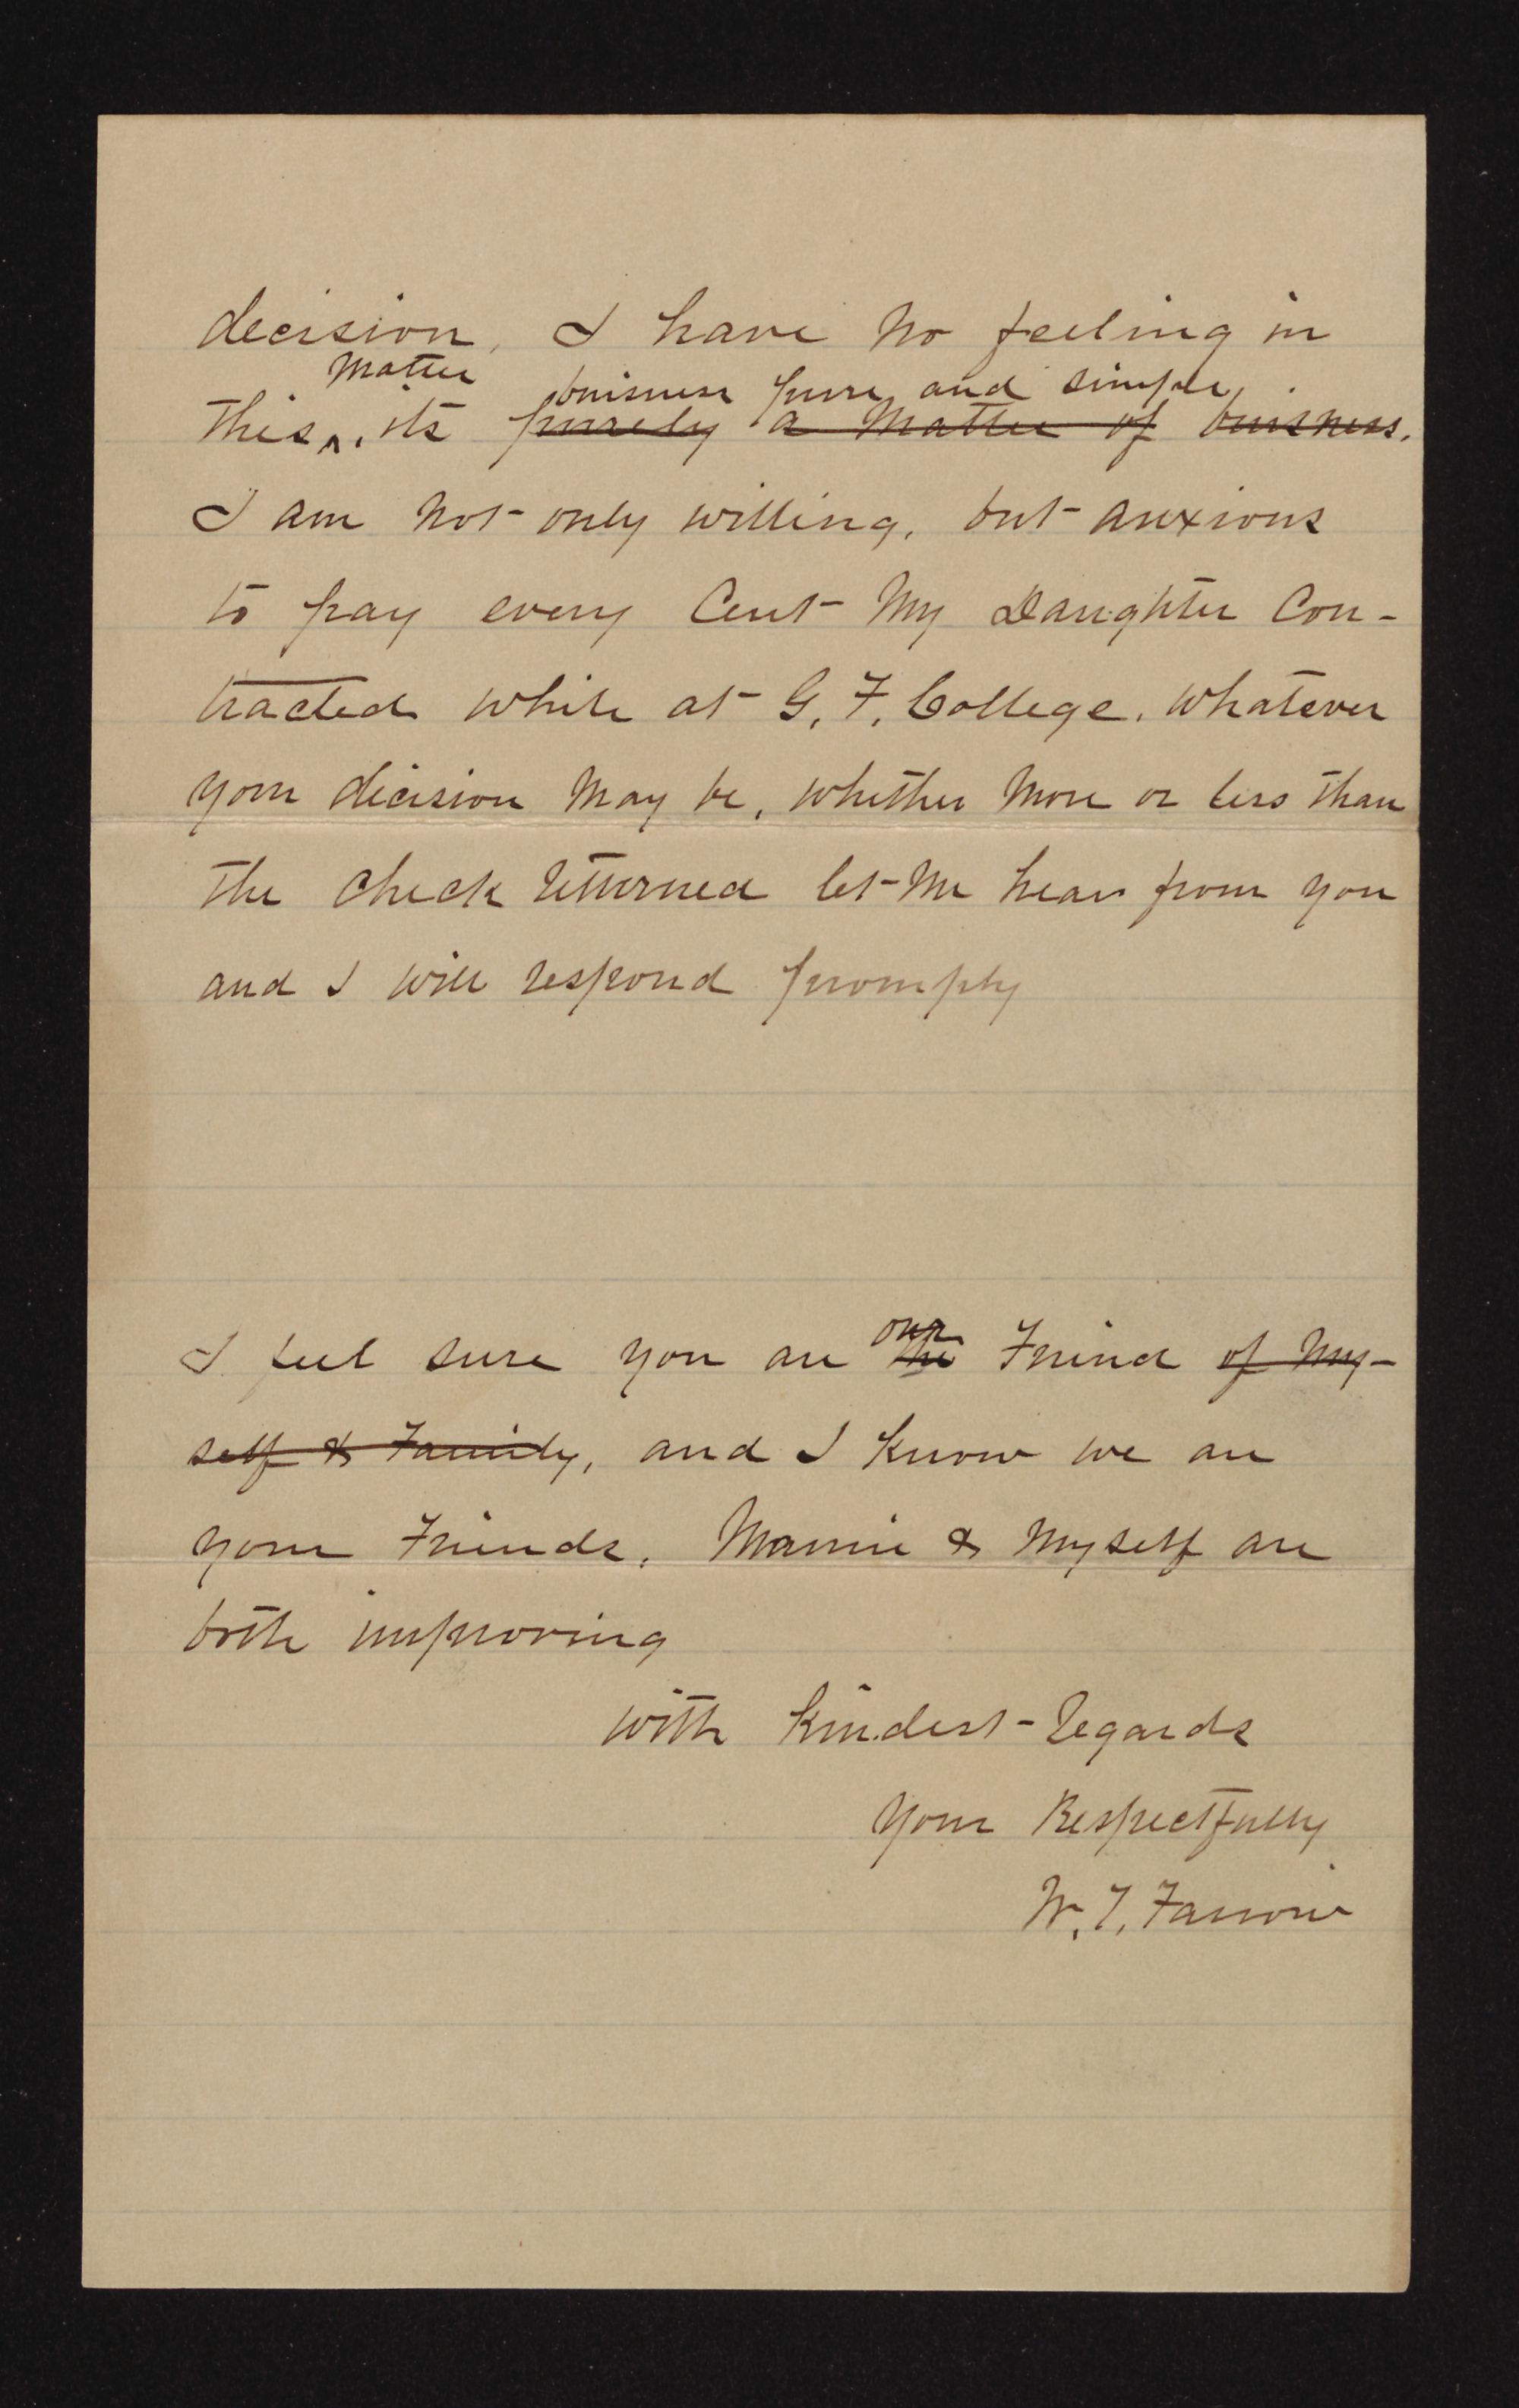 decision, I have no feeling in
Matter buisness pure and simple.
this ^. its purely a Matter of buisness.
I am not only willing, but anxious
to pay every Cent My Daughter Con-
tracted while at G. F. College. Whatever
your dicision May be, whether More or less than
the check returned let Me hear from you
and I will respond promply
our
I feel sure you are the Friend of My-
self & Family, and I Know we are
your Friends. Mamie & Myself are
both improving
with Kindest regards
Your Respectfully
W. T. Farrow